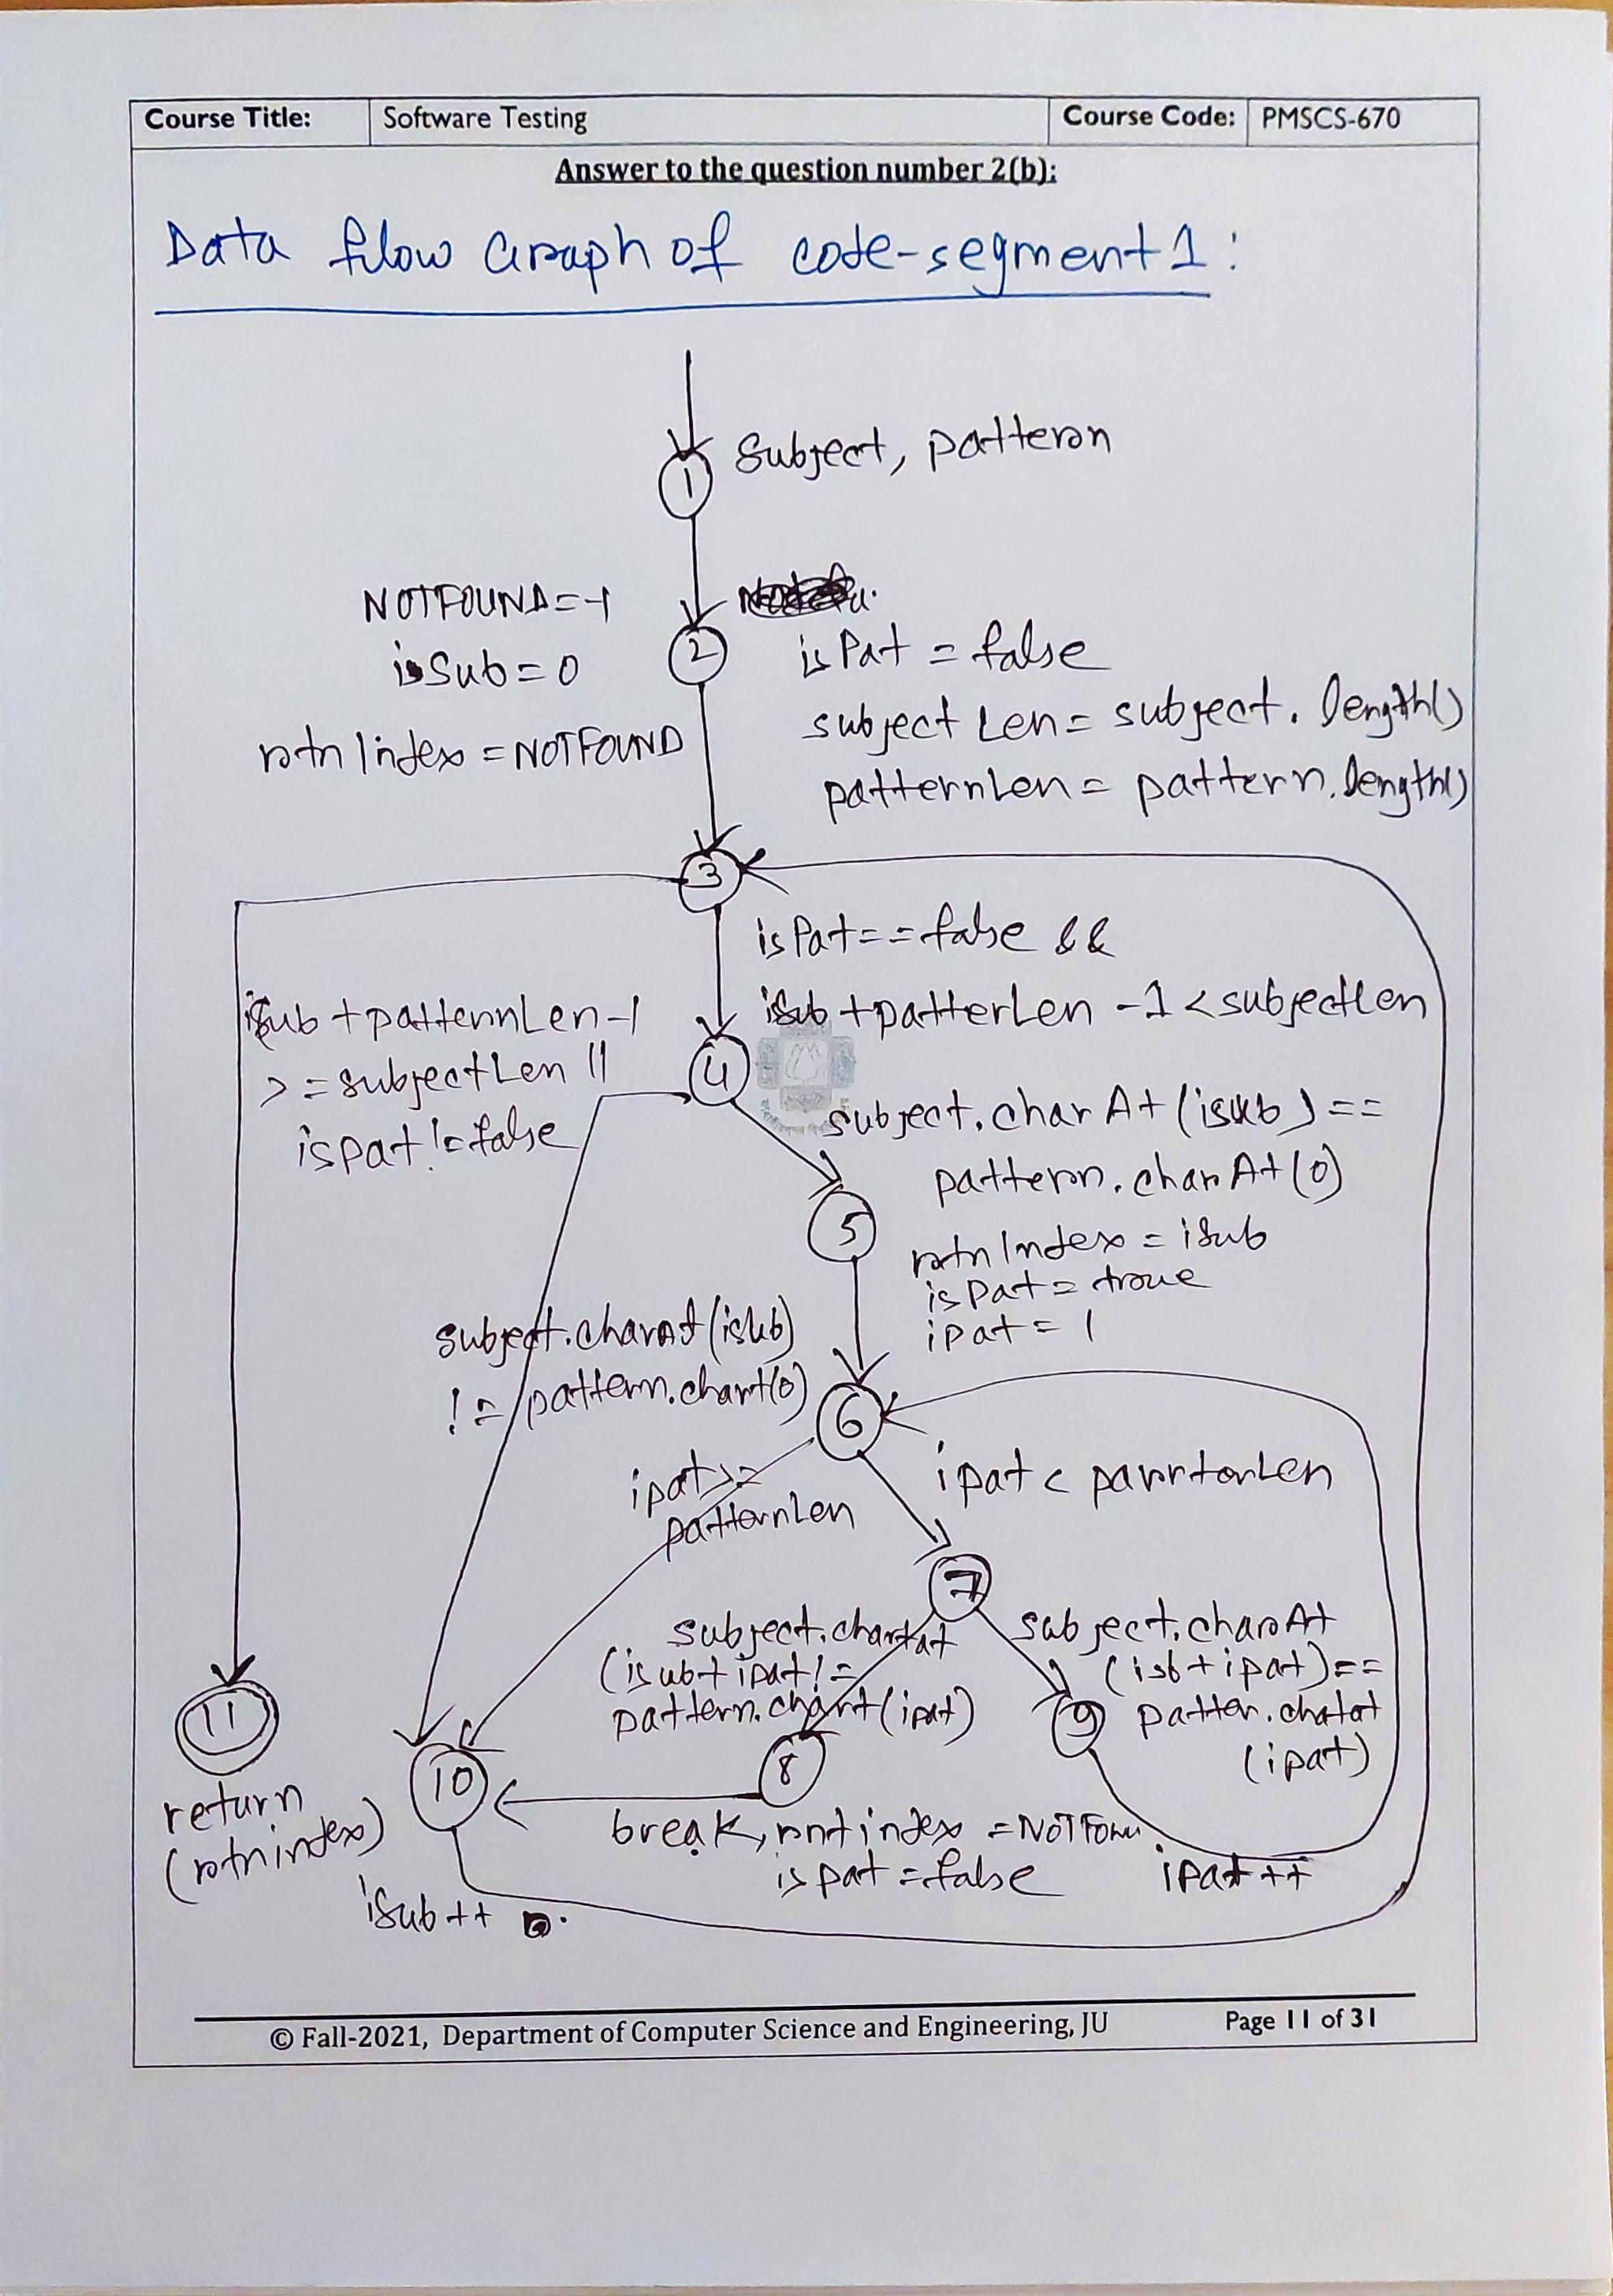 Course Title: Software Testing Course Code: PMSCS-670
Answer to the question number 2(b):
Data flow Graph of code-segment 1:
Subject, pattern
1
NOTFOUND=-1
isSub=0
rtnIndex=NOTFOUND
2
isPat = false
subjectLen= subject.length()
patternLen= pattern.length()
3
isPat==false &&
iSub+patterLen -1<subjectLen
iSub+patternLen-1
>=subjectLen ||
ispat!=false
4
subject.charAt(isub)==
pattern.charAt(0)
5
rtnIndex=iSub
isPat=true
ipat=1
subject.charAt(isub)
!=pattern.chart(0)
6
ipat>=
patternLen
ipat<parrtonLen
7
subject.chartat
(isub+ipat!=
pattern.chart(ipat)
subject.charAt
(isb+ipat)==
patter.chatat
(ipat)
8
9
10
11
return
(rtnindex)
break,rntindex=NOTFoun
ispat=false
ipat++
iSub++
© Fall-2021, Department of Computer Science and Engineering, JU Page 11 of 31